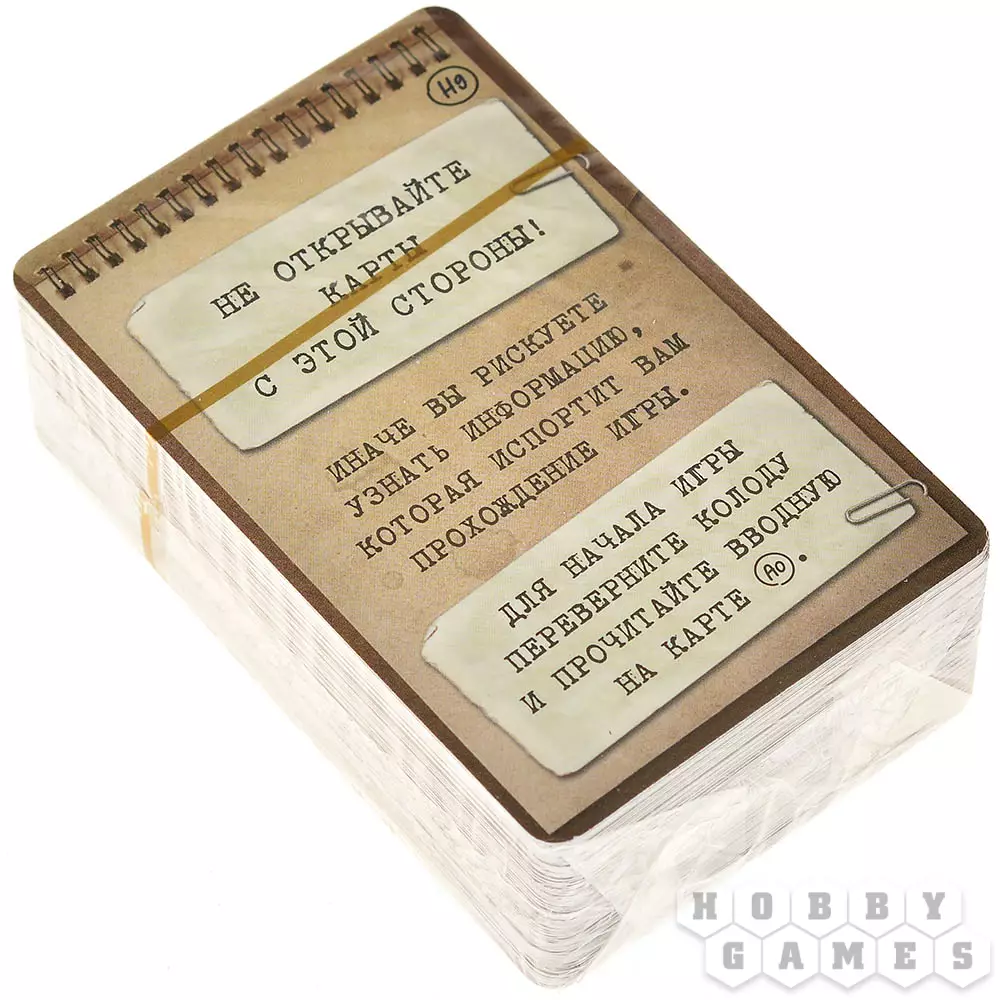 Н9
НЕ ОТКРЫВАЙТЕ
КАРТЫ
С ЭТОЙ СТОРОНЫ!
ИНАЧЕ ВЫ РИСКУЕТЕ
УЗНАТЬ ИНФОРМАЦИЮ,
КОТОРАЯ ИСПОРТИТ ВАМ
ПРОХОЖДЕНИЕ ИГРЫ.
ДЛЯ НАЧАЛА ИГРЫ
ПЕРЕВЕРНИТЕ КОЛОДУ
И ПРОЧИТАЙТЕ ВВОДНУЮ
НА КАРТЕ А0.
HOBBY
GAMES